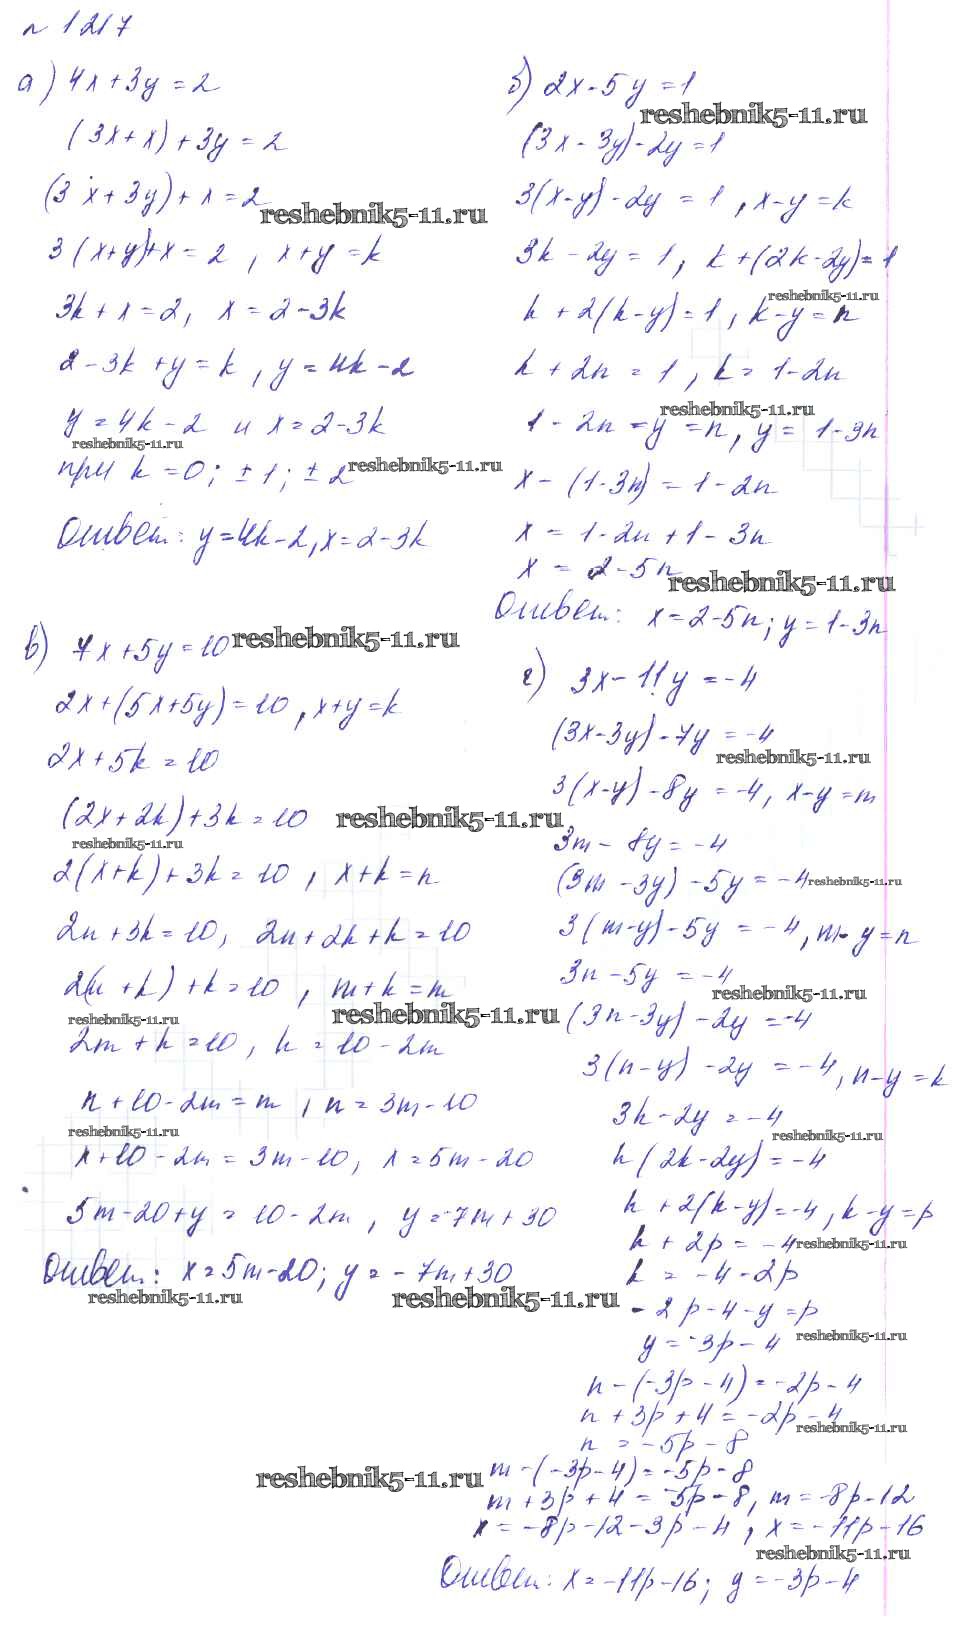 n 1217
а) 4x+3y=2
(3x+x)+3y=2
(3x+3y)+x=2
reshebnik5-11.ru
3(x+y)+x=2, x+y=k
3k+x=2, x=2-3k
2-3k+y=k, y=4k-2
y=4k-2 и x=2-3k
reshebnik5-11.ru
при k=0; ±1; ±2
reshebnik5-11.ru
Ответ: y=4k-2, x=2-3k
б) 2x-5y=1
reshebnik5-11.ru
(3x-3y)-2y=1
3(x-y)-2y=1, x-y=k
3k-2y=1, k+(2k-2y)=1
reshebnik5-11.ru
k+2(k-y)=1, k-y=n
k+2n=1, k=1-2n
reshebnik5-11.ru
1-2n-y=n, y=1-3n
x-(1-3n)=1-2n
x=1-2n+1-3n
x=2-5n
reshebnik5-11.ru
Ответ: x=2-5n; y=1-3n
в) 7x+5y=10
reshebnik5-11.ru
2x+(5x+5y)=10, x+y=k
2x+5k=10
(2x+2k)+3k=10
reshebnik5-11.ru
reshebnik5-11.ru
2(x+k)+3k=10, x+k=n
2n+3k=10, 2n+2k+k=10
2(n+k)+k=10, n+k=m
reshebnik5-11.ru
reshebnik5-11.ru
2m+k=10, k=10-2m
n+10-2m=m, n=3m-10
reshebnik5-11.ru
x+10-2m=3m-10, x=5m-20
5m-20+y=10-2m, y=-7m+30
Ответ: x=5m-20; y=-7m+30
reshebnik5-11.ru
reshebnik5-11.ru
г) 3x-11y=-4
(3x-3y)-7y=-4
reshebnik5-11.ru
3(x-y)-8y=-4, x-y=m
3m-8y=-4
(3m-3y)-5y=-4
reshebnik5-11.ru
3(m-y)-5y=-4, m-y=n
3n-5y=-4
reshebnik5-11.ru
(3n-3y)-2y=-4
3(n-y)-2y=-4, n-y=k
3k-2y=-4
reshebnik5-11.ru
k(2k-2y)=-4
k+2(k-y)=-4, k-y=p
k+2p=-4
reshebnik5-11.ru
k=-4-2p
-2p-4-y=p
y=-3p-4
reshebnik5-11.ru
n-(-3p-4)=-2p-4
n+3p+4=-2p-4
reshebnik5-11.ru
n=-5p-8
reshebnik5-11.ru
m-(-3p-4)=-5p-8
m+3p+4=-5p-8, m=-8p-12
x=-8p-12-3p-4, x=-11p-16
reshebnik5-11.ru
Ответ: x=-11p-16; y=-3p-4